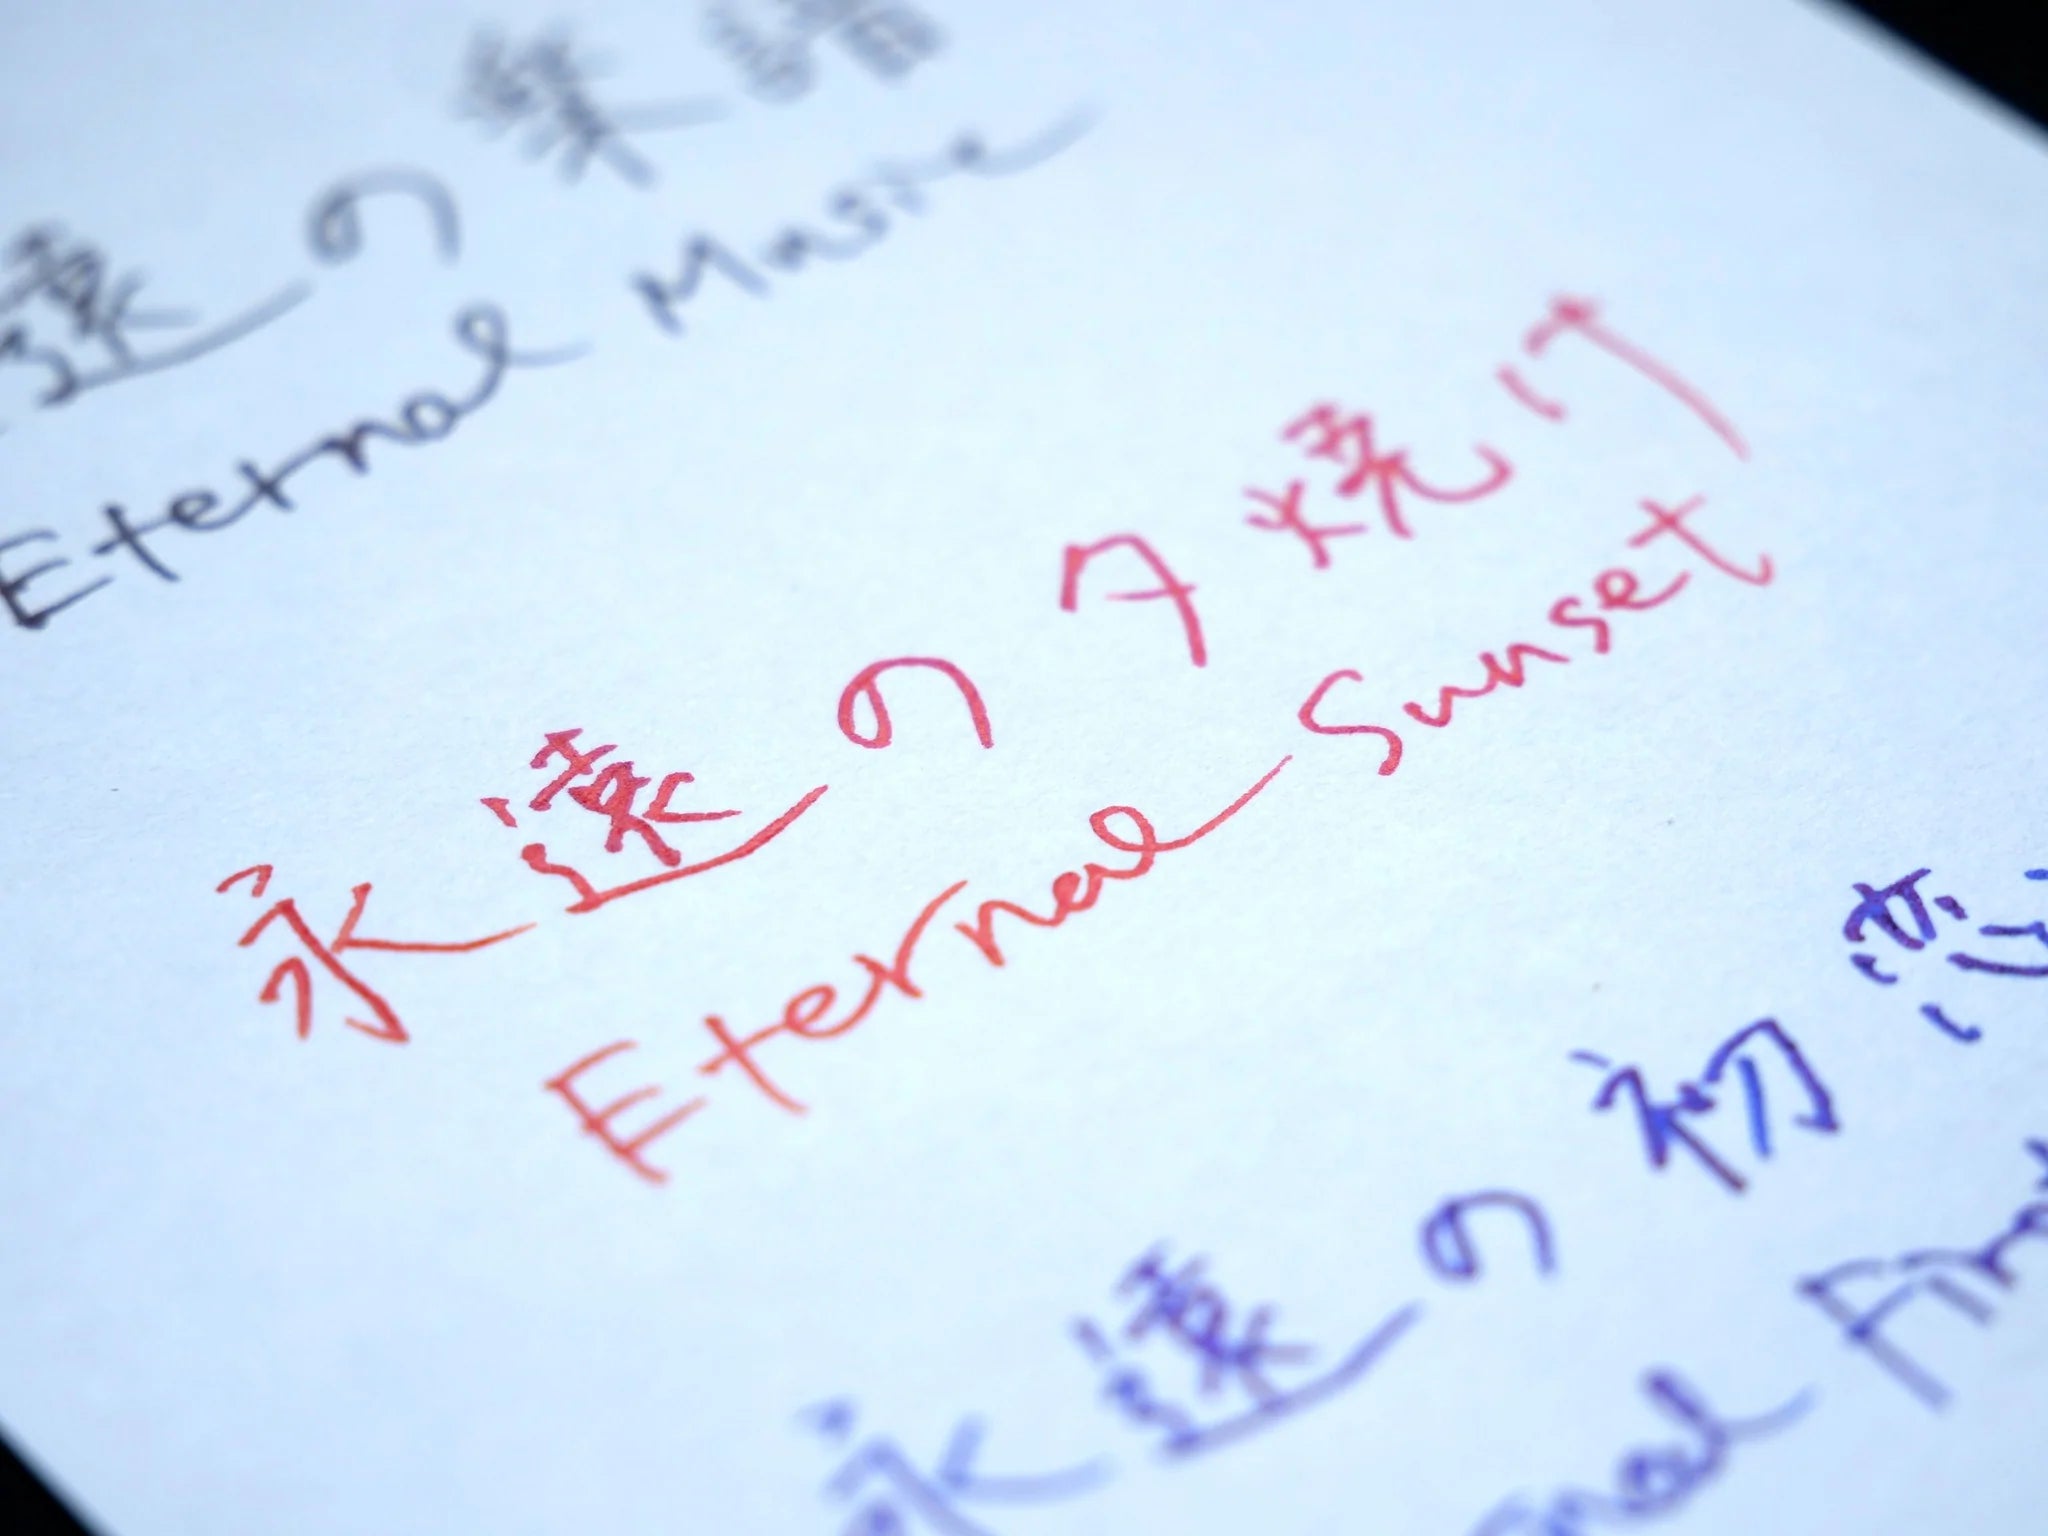 遠の楽譜
Eternal Music
永遠の夕焼け
Eternal Sunset
永遠の初恋